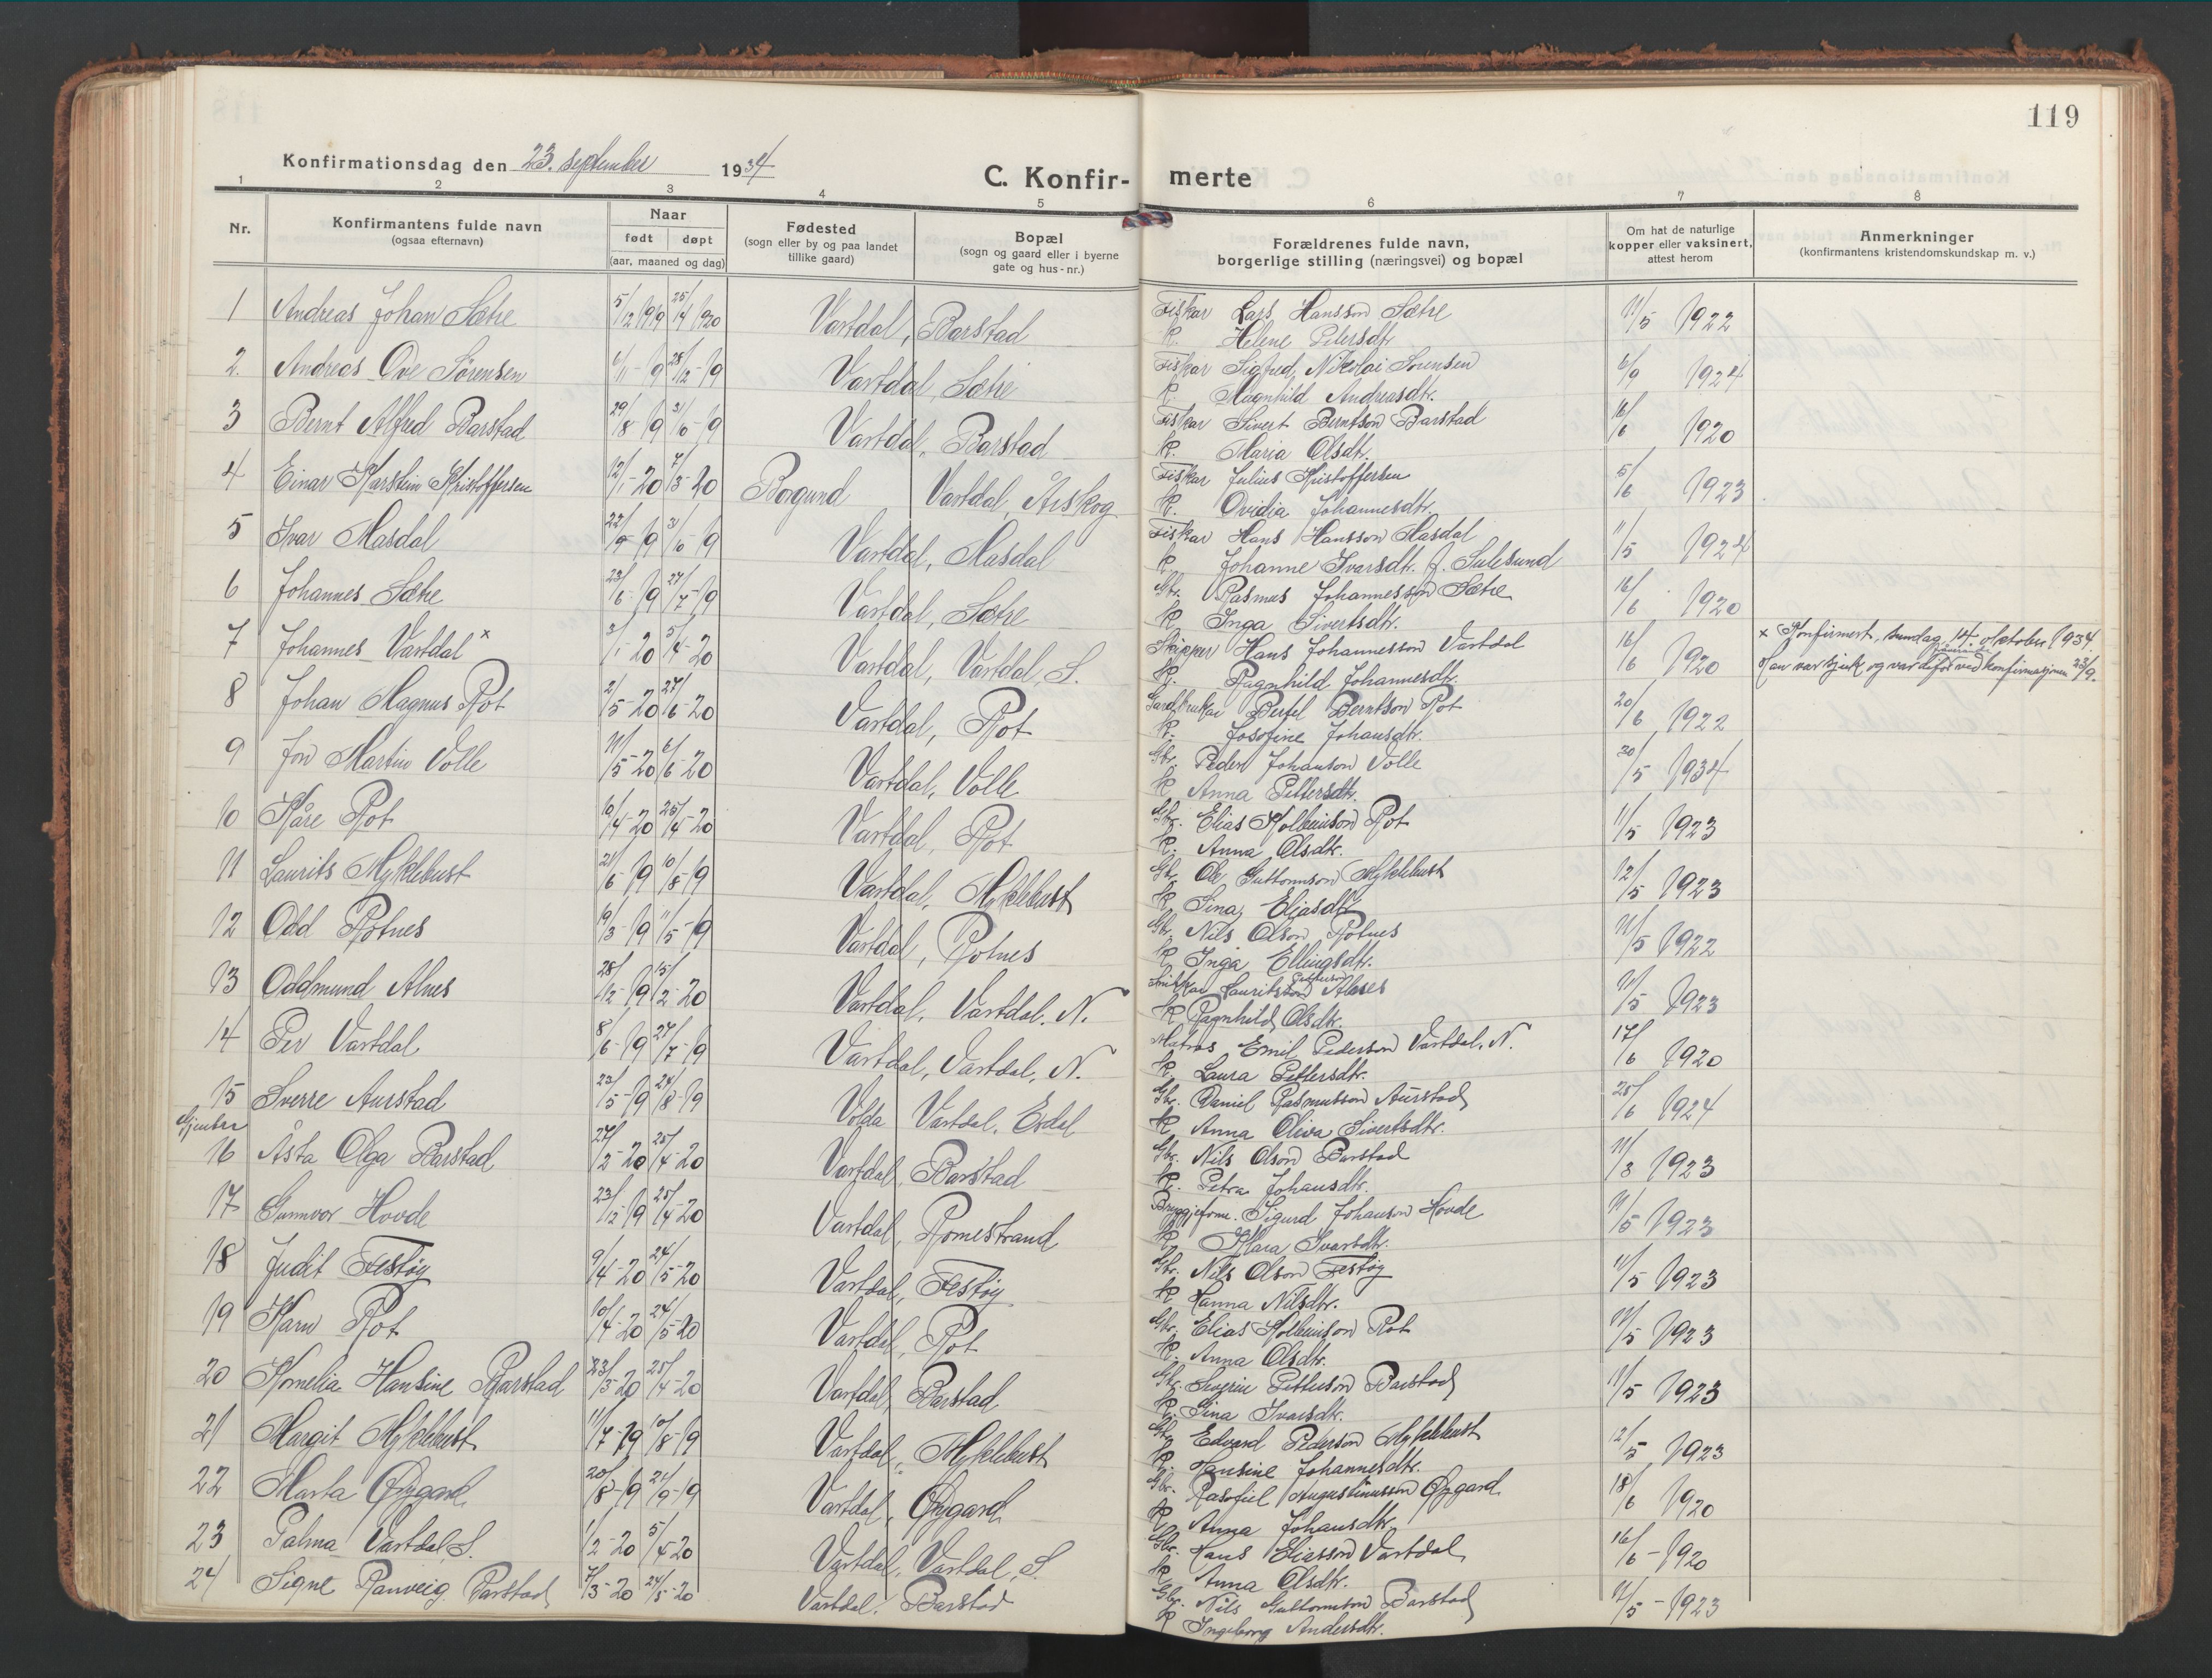 119
Konfirmationsdag den 23. september 1934
C. Konfir- merte
1 2 3 4 5 6 7 8
Nr.
Konfirmantens fulde navn
(ogsaa efternavn)
Naar
født døpt
(aar, maaned og dag)
Fødested
(sogn eller by og paa landet
tillike gaard)
Bopæl
(sogn og gaard eller i byerne
gate og hus-nr.)
Forældrenes fulde navn,
borgerlige stilling (næringsvei) og bopæl
Om hat de naturlige
kopper eller vaksinert,
attest herom
Anmerkninger
(konfirmantens kristendomskundskap m. v.)
1 Andreas Johan Sætre 5/12 1919 25/4 1920 Vartdal, Barstad Fiskar Lars Hansson Sætre 11/5 1922
k. Helene Petersdtr.
2. Andreas Ove Sørensen 6/11-19 28/12-19 Vartdal, Sætre Fiskar Sigfred Nikolai Sørensen 6/9 1924
k. Magnhild Andreasdtr.
3 Bernt Alfred Barstad 29/8 19 31/10-19 Vartdal, Barstad Fiskar Sivert Berntson Barstad 16/6 1920
k. Maria Olsdtr.
4 Einar Karstein Kristoffersen 12/1-20 7/3-20 Borgund Vartdal, Årskog Fiskar Julius Kristoffersen 5/6 1923
k. Ovidia Johannesdtr.
5 Ivar Masdal 22/9-19 31/10 19 Vartdal, Masdal Fiskar Hans Hansson Masdal 11/5 1924
k. Johanne Ivarsdtr. f. Sulesund
6 Johannes Sætre 23/6-19 27/7-19 Vartdal, Sætre Gbr. Rasmus Johannesson Sætre 16/6 1920
k. Inga Sivertsdtr.
7 Johannes Vartdal x 3/1-20 5/4-20 Vartdal, Vartdal, S. Skipper Hans Johannesson Vartdal 16/6 1920 x Konfirmert, sundag, 14. oktober 1934.
k. Ragnhild Johannesdtr. Han var sjuk og var difor ved konfirmasjonen 23/9.
8 Johan Magnus Rot 2/5-20 27/6-20 Vartdal, Rot Gardbrukar Bertel Berntson Rot 20/6 1922
k. Josefine Johansdtr.
9 Jon Martin Volle 11/5-20 6/6-20 Vartdal, Volle Gbr. Peder Johanson Volle 20/5 1934
k. Anna Pettersdtr.
10 Kåre Rot 10/4-20 25/4-20 Vartdal, Rot Gbr. Elias Kolbeinson Rot 11/5 1923
k. Anna Olsdtr.
11 Laurits Myklebust 21/6 19 10/8-19 Vartdal, Myklebust Gbr. Ole Guttormson Myklebust 12/5 1923
k. Sina Eliasdtr.
12 Odd Rotnes 19/3-19 11/5-19 Vartdal, Rotnes Gbr. Nils Olson Rotnes 11/5 1922
k. Inga Ellingsdtr.
13 Oddmund Alnes 28/12-19 15/2-20 Vartdal, Vartdal. N. Snikkar Lauritsson Alnes 11/5 1923
k. Ragnhild Olsdtr.
14 Per Vartdal 8/6-19 27/7-19 Vartdal, Vartdal, N. Matros Emil Pederson Vartdal. N. 17/6 1920
k. Laura Pettersdtr.
15 Sverre Aurstad 23/5-19 24/8-19 Volda Vartdal. Erdal Gbr. Daniel Rasmusson Aurstad 25/6 1924
k. Anna Oliva Sivertsdtr.
Gjenter
16 Åsta Olga Barstad 27/2-20 25/4-20 Vartdal, Barstad Gbr. Nils Olson Barstad 11/3 1923
k. Petra Johansdtr.
17 Gunnvor Hovde 23/12-19 25/4-20 Vartdal, Romestrand Bryggjeform. Sigurd Johanson Hovde 11/5 1923
k. Klara Ivarsdtr.
18 Judit Festøy 9/4-20 24/5-20 Vartdal, Festøy Gbr. Nils Olson Festøy 11/5 1923
k. Hanna Nilsdtr.
19 Karin Rot 10/4-20 24/5-20 Vartdal, Rot Gbr. Elias Kolbeinson Rot 11/5 1923
k. Anna Olsdtr.
20 Kornelia Hansine Barstad 23/3-20 25/4-20 Vartdal, Barstad Gbr. Severin Petterson Barstad 11/5 1923
k. Sina Ivarsdtr.
21 Margit Myklebust 11/7-19 10/8-19 Vartdal, Myklebust Gbr. Edvard Pederson Myklebust 12/5 1923
k. Hansine Johannesdtr.
22 Marta Øygard 20/8-19 21/9-19 Vartdal, Øygard Gbr. Rasofiel Augustinusson Øygard 18/6 1920
k. Anna Johansdtr.
23 Palma Vartdal S. 1/2-20 5/4-20 Vartdal, Vartdal, S. Gbr. Hans Eliasson Vartdal 16/6-1920
k. Anna Olsdtr.
24 Signe Ranveig Barstad 7/3-20 24/5-20 Vartdal, Barstad Gbr. Nils Guttormson Barstad 11/5-1923
k. Ingeborg Andersdtr.